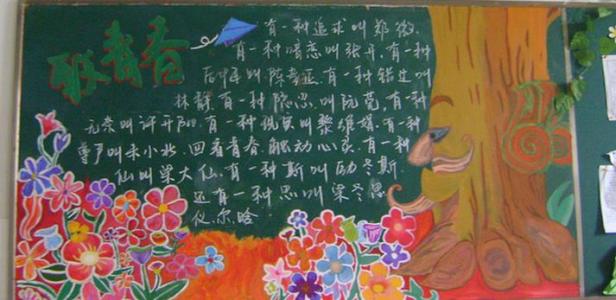 致青春
有一种追求叫郑微,
有一种暗恋叫张开,有一种
后悔叫陈孝正,有一种错过叫
林静,有一种隐忍叫阮莞,有一种
无奈叫许开阳,有一种现实叫黎维娟,有一种
尊严叫朱小北,回看青春,触动心,有一种
仙叫梁大仙,有一种斯叫励冬斯
还有一种思叫梁冬思